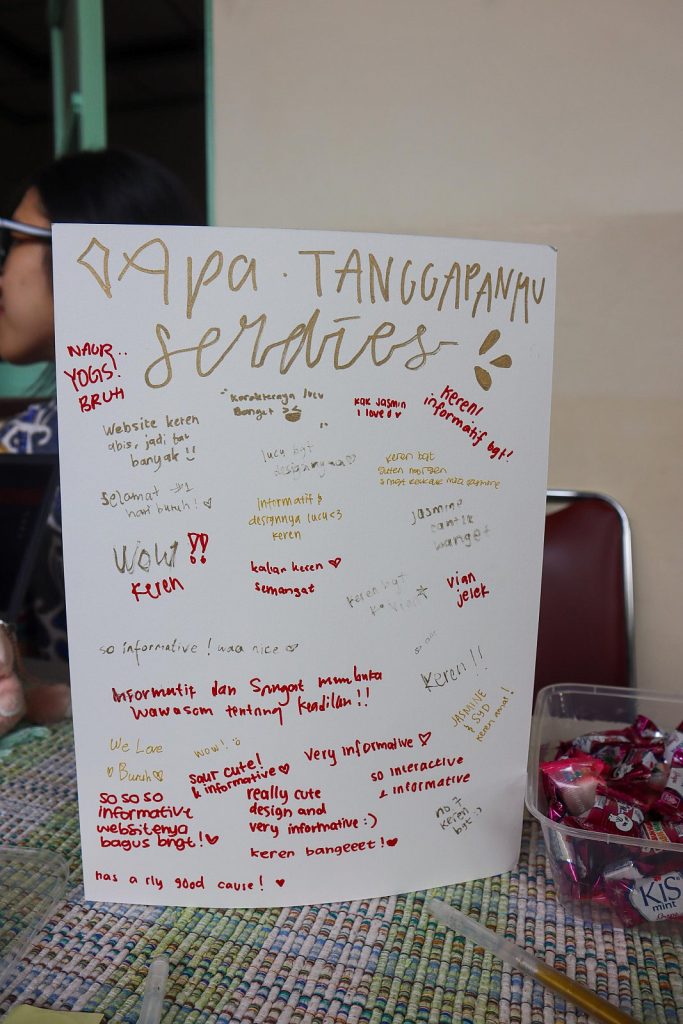 Apa · TANGGAPANMU
serdies
NAUR..
YOGS!
BRUH
Karakternya lucu
Banget ><
KaK Jasmin
I love u ♥
KEREN!
informatif bgt!
Website keren
abis, jadi tau
banyak !!
lucu bgt
designnya ♡
keren bgt
selamat
hari buruh! ♡
Informatif &
designnya lucu<3
keren
jasmine
cantik
banget
Wow !!
keren
kalian keren ♡
semangat
keren bgt
Ka Vian ☆
vian
jelek
so informative ! waa nice ♡
keren !!
Informatif dan Sangat membuka
wawasan tentang Keadilan!!
JASMINE
keren
We Love
♡ Buruh ♡
wow! :)
saur cute!
& informative ♡
very informative ♡
so interactive
& informative
so so so
informative
websitenya
bagus bngt! ♥
really cute
design and
very informative :)
keren bangeeet! ♥
no 7
keren
bgt :)
has a rly good cause! ♥
KIS
mint